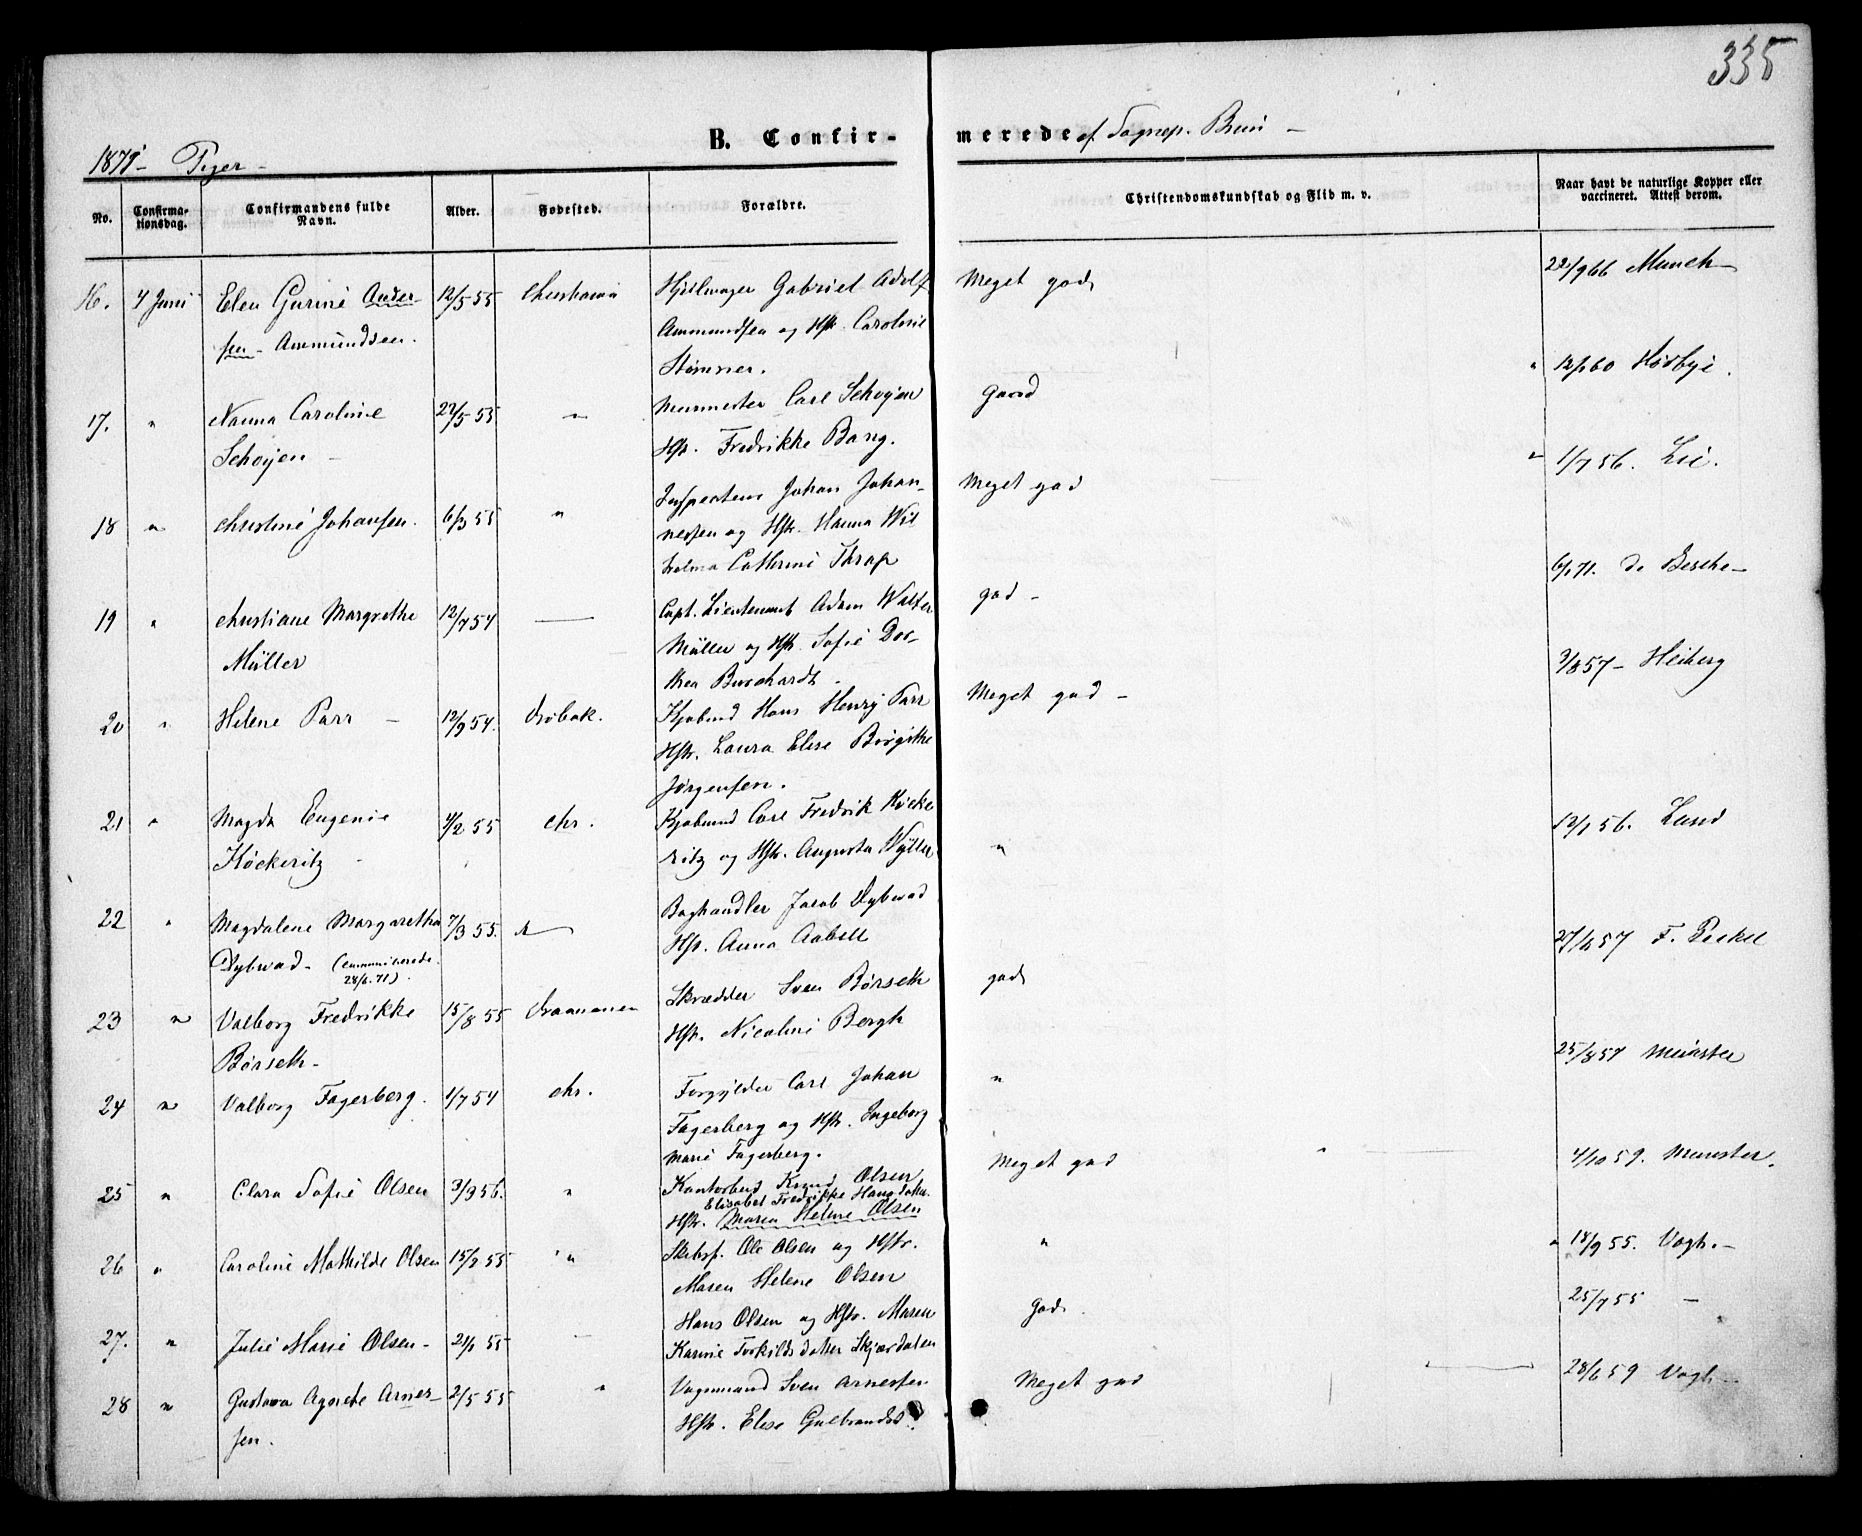 335
1871 - Piger -
B. Confir- merede af Sognep. Brun -
No.
Confirma-
tionsdag.
Confirmandens fulde
Navn.
Alder.
Fødested.
Forældre.
Christendomskundskab og Flid m. v.
Naar havt de naturlige Kopper eller
vaccineret. Attest derom.
16. 4 Juni Elen Gurine Ander- 12/5 55 Christiania Hjulmager Gabriel Adolf Meget god 22/9 66 Munch -
sen - Ammundsen. Ammundsen og Hstr. Caroline
Størmer.
17. " Nanna Caroline 22/5 55 " Murmester Carl Schøyen Gaard " 12/1 60 Hørbye.
Schøyen - Hstr. Fredrikke Bang.
18 " Christine Johansen. 6/3 55 " Inspecteur Johan Johan- Meget god " 1/7 56. Lie.
nessen og Hstr. Hanna Wil-
helma Cathrine Thrap
19 " Christiane Margrethe 12/7 54 — Capt. Lieutenant Adam Walter god - 6/1 71. de Besche -
Müller Müller og Hstr. Sofie Dor-
thea Burchardt -
20 " Helene Parr - 12/9 54. Drøbak. Kjøbmd Hans Henry Parr Meget god - 3/8 57 - Heiberg
Hstr. Laura Elise Birgithe
Jørgensen.
21 " Magda Eugenie 4/2 55 Chr. Kjøbmd Carl Fredrik Køcke " 12/1 56. Lund
Køckeritz - ritz og Hstr. Augusta Wyller
22 " Magdalene Margaretha 7/3 55. " — Boghandler Jacob Dybwad 27/8 57 F. Peckel
Dybwad - (communicerede Hstr. Anna Aabell
28/6. 71).
23 " Valborg Fredrikke 15/8 55 Drammen Skrædder Sven Børseth god
Børseth - Hstr. Nicoline Bergh
24 " Valborg Fagerberg. 1/7 54 Chr. Forgylder Carl Johan " 25/8 57 Münster
Fagerberg og Hstr. Ingeborg
Marie Fagerberg.
25 " Clara Sofie Olsen 3/3 56. " Kontorbud Knud Olsen Meget god " 4/10 59. Münster.
Elisabet Fredrikke Hansdatter
Hstr. Maren Helene Olsen
26 " Caroline Mathilde Olsen 15/2 55 " Skibsf. Ole Olsen og Hstr. " " 18/9 55. Vogh. -
Maren Helene Olsen
27. " Julie Marie Olsen - 21/1 55 — Hans Olsen og Hstr. Maren God. 25/7 55 -
Karine Torkildsdatter Skjærdalen
28 " Gustava Agnete Arnes- 2/5 55 " Vognmand Sven Arnesen Meget god — 28/6 59 Vogh -
sen. Hstr. Elise Gulbrandsd.